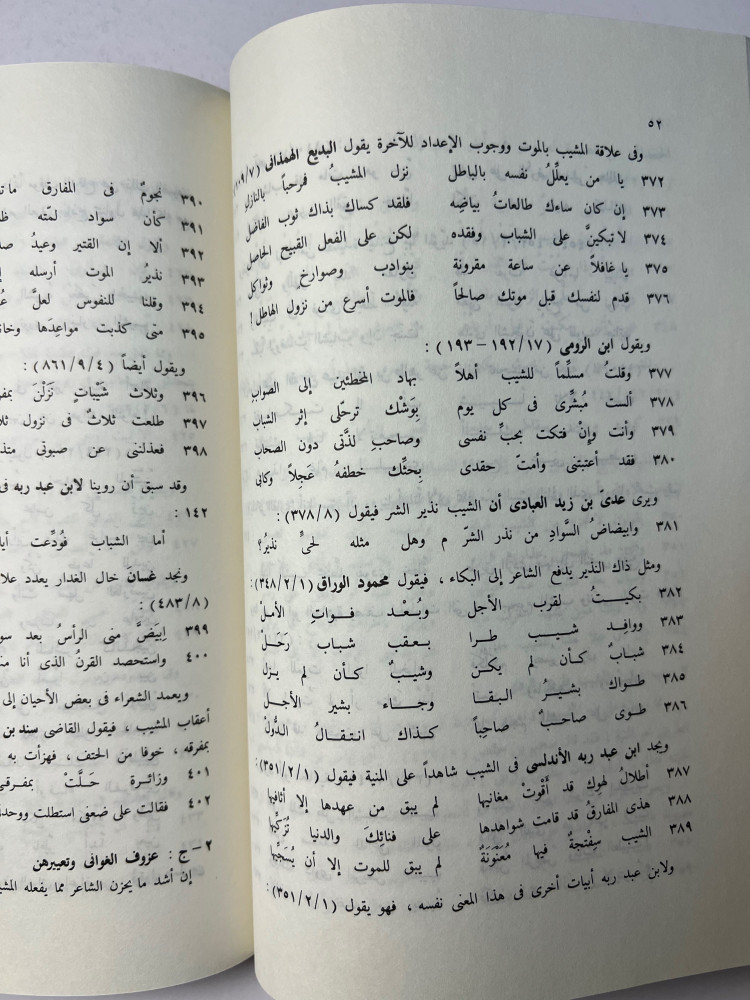 ٥٢
وفى علاقة المشيب بالموت ووجوب الإعداد للآخرة يقول البديع الهمذانى
٣٧٢ يا من يعلِّلُ نفسه بالباطل نزل المشيبُ فمرحباً بالنازل
٣٧٣ إن كان ساءك طالعاتُ بياضِه فلقد كساك بذاك ثوب الفاضل
٣٧٤ لا تبكينَّ على الشباب وفقده لكن على الفعل القبيح الحاصل
٣٧٥ يا غافلاً عن ساعة مقرونة بنوادب وصوارخ وثواكل
٣٧٦ قدم لنفسك قبل موتك صالحاً فالموت أسرع من نزول الهاطل!
ويقول ابن الرومى (١٩٢/١٧ – ١٩٣) :
٣٧٧ وقلتُ مسلِّماً للشيب أهلاً بهاد المخطئين إلى الصواب
٣٧٨ ألست مُبشِّرى فى كل يوم بِوَشْك ترحّلى إثر الشباب
٣٧٩ وأنت وإنْ فتكت بحبِّ نفسى وصاحبِ لذَّتى دون الصحاب
٣٨٠ فقد أعتبتنى وأمتَّ حقدى بِحثِّك خطفهُ عَجِلاً وكابى
ويرى عدىّ بن زيد العبادى أن الشيب نذير الشر فيقول (٣٧٨/٨) :
٣٨١ وابيضاضُ السَّوادِ من نذر الشرّ م وهل مثله لحىٍّ نذيرُ؟
ومثل ذاك النذير يدفع الشاعر إلى البكاء ، فيقول محمود الوراق (٣٤٨/٢/١) :
٣٨٢ بكيـتُ لقرب الأجل وبُعْـد فـواتِ الأملْ
٣٨٣ ووافِـد شـيب طـرا بـعقب شباب رَحَـلْ
٣٨٤ شبابٌ كـأن لم يكـن وشيبٌ كـأن لم يـزل
٣٨٥ طـواك بشيـرُ البـقا وجـاء بشير الأجـل
٣٨٦ طـوى صاحـبٌ صاحِباً كـذاك انـتقـالُ الدُّولْ
ويجد ابن عبد ربه الأندلسى فى الشيب شاهداً على المنية فيقول (٣٥١/٢/١) :
٣٨٧ أطلالُ لهوك قد أَقْوتْ مغانيها لم يبق من عهدها إلا أثافيها
٣٨٨ هذى المفارقُ قد قامت شواهدها على فنائِكَ والدنيا تُزكِّيها
٣٨٩ الشيب سِفْتجةٌ فيها مُعَنْوَنَةٌ لم يبق للموت إلا أن يُسَجِّيها
ولابن عبد ربه أبيات أخرى فى هذا المعنى نفسه ، فهو يقول (٣٥١/٢/١) :
٣٩٠ نجومٌ فى المفارق
٣٩١ كأن سواد لمّته
٣٩٢ ألا إن القتير وعيدُ
٣٩٣ نذيرُ الموت أرسله
٣٩٤ وقلنا للنفوس لعلَّ
٣٩٥ متى كذبت مواعِدَها
ويقول أيضاً (٨٦١/٩/٤) :
٣٩٦ وثلاث شَيْباتٍ نَزَلْنَ
٣٩٧ طلعت ثلاثٌ فى نزول
٣٩٨ فعذلننى عن صبوتى
وقد سبق أن روينا لابن عبد ربه
١٤٢ :
أما الشباب فُودِّعت
ونجد غسانَ خال الغدار يعدد
(٤٨٣/٨) :
٣٩٩ اِبيَضَّ منى الرأسُ بعد
٤٠٠ واستحصد القرنُ الذى أنا
ويعمد الشعراء فى بعض الأحيان إلى
أعقاب المشيب ، فيقول القاضى سند بن
بمفرقه ، خوفا من الحتف ، فهزأت به
٤٠١ وزائرة حَـلَّتْ
٤٠٢ فقالت على ضعفى استطلت
٢ – ج : عزوف الغوانى وتعييرهن
إن أشد ما يحزن الشاعر مما يفعله